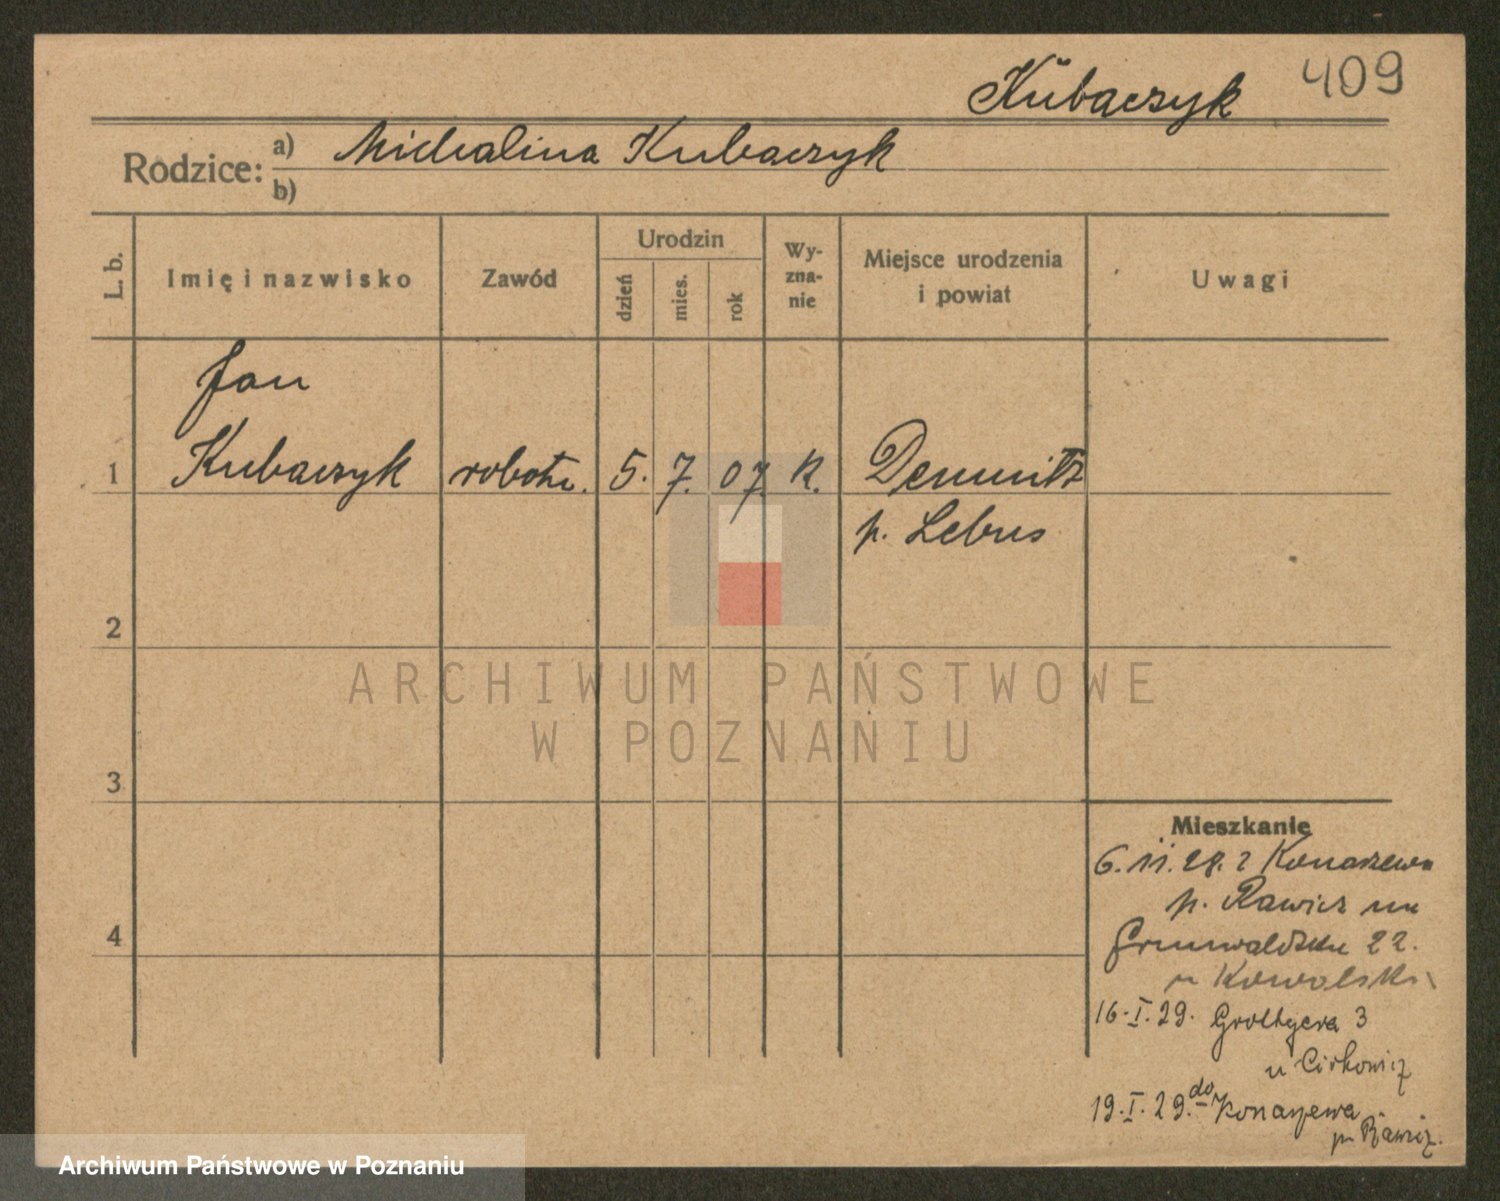 Kubaczyk 409
Rodzice: a) Michalina Kubaczyk
b)
L. b. Imię i nazwisko Zawód Urodzin dzień mies. rok Wy-zna-nie Miejsce urodzenia i powiat Uwagi
Jan
1 Kubaczyk robotn. 5. 7. 07. K. Demnitz
p. Lebus
2
ARCHIWUM PAŃSTWOWE
W POZNANIU
3
Mieszkanie
6.11.28. z Konarzewa
p. Rawicz
4 Grunwaldzka 22.
u Kowalski
16.I.29. Grottgera 3
u
19.I.29. do Konarzewa
p. Rawicz.
Archiwum Państwowe w Poznaniu